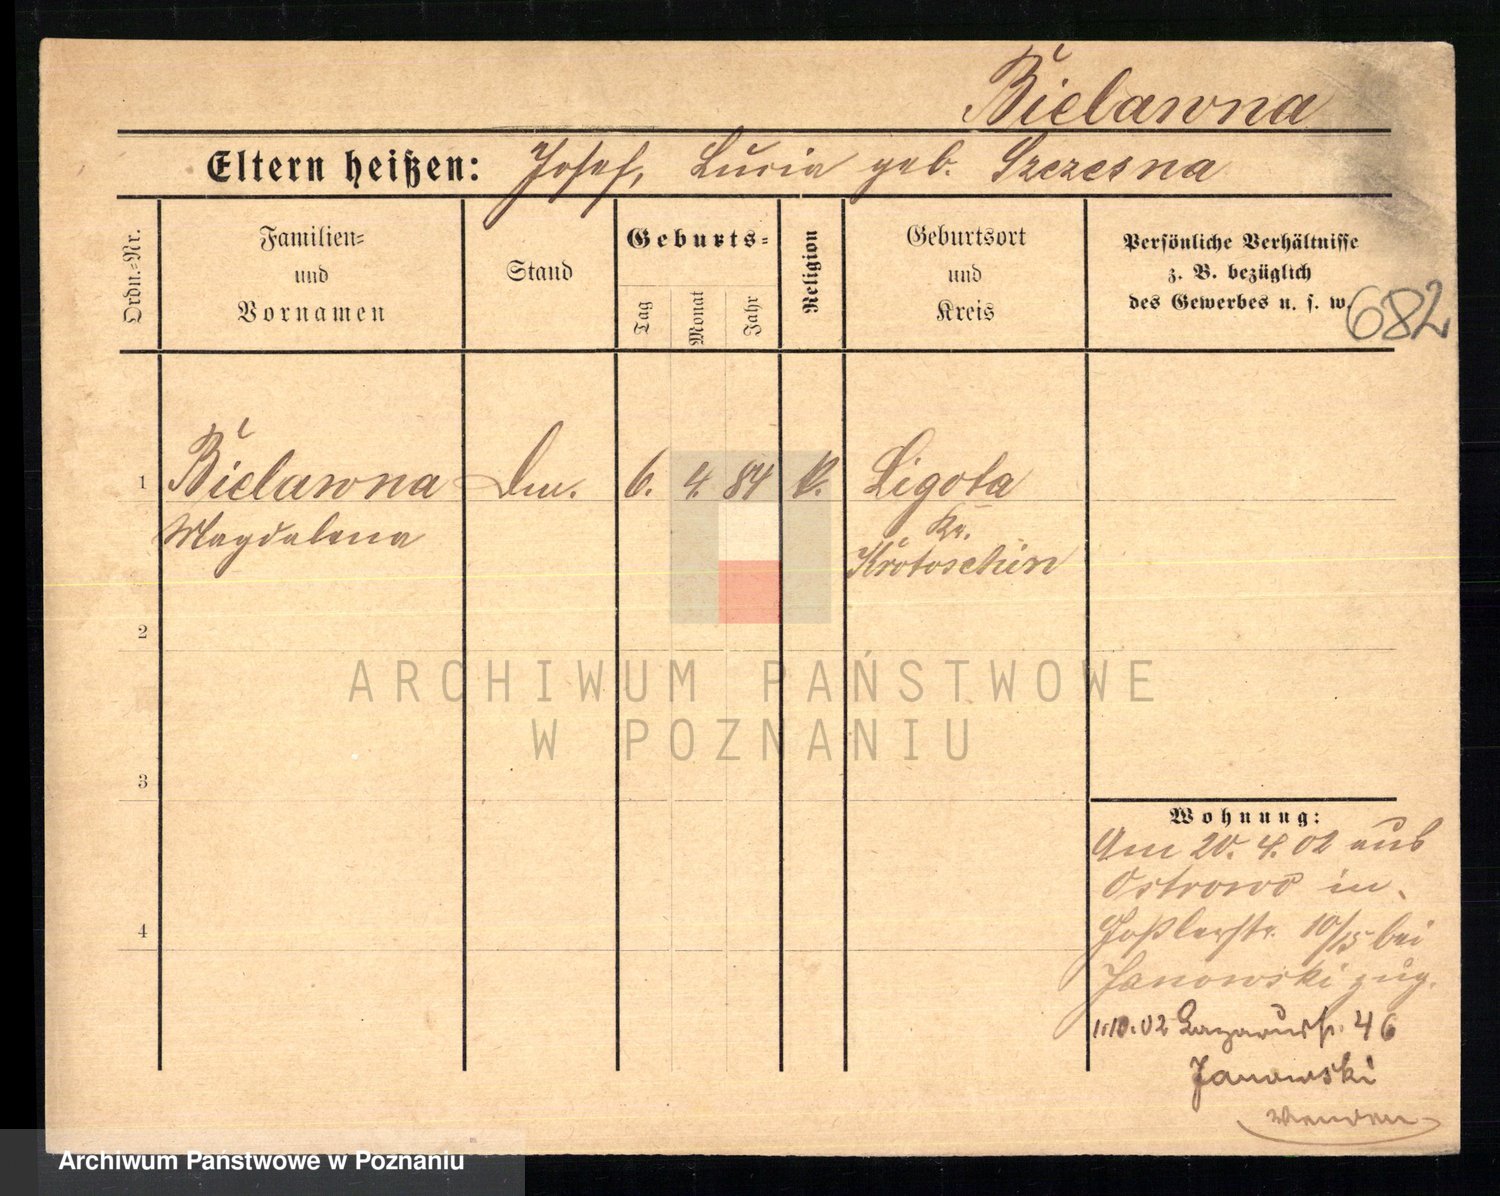 Bielawna
Eltern heißen: Josef, Lucia geb. Szczesna
Ordn.=Nr.
Familien=
und
Vornamen
Stand
Geburts=
Tag
Monat
Jahr
Religion
Geburtsort
und
Kreis
Persönliche Verhältnisse
z. B. bezüglich
des Gewerbes u. s. w.
682
1 Bielawna 6. 4. 84 k. Ligota
Magdalena
Kr.
Krotoschin
2
3
4
Wohnung:
Am 20. 4. 02 aus
Ostrowo in
Goßlerstr. 10/15 bei
Janowski zug.
1.10.02 Lazarusstr. 46
Janowski
wenden
ARCHIWUM PAŃSTWOWE
W POZNANIU
Archiwum Państwowe w Poznaniu